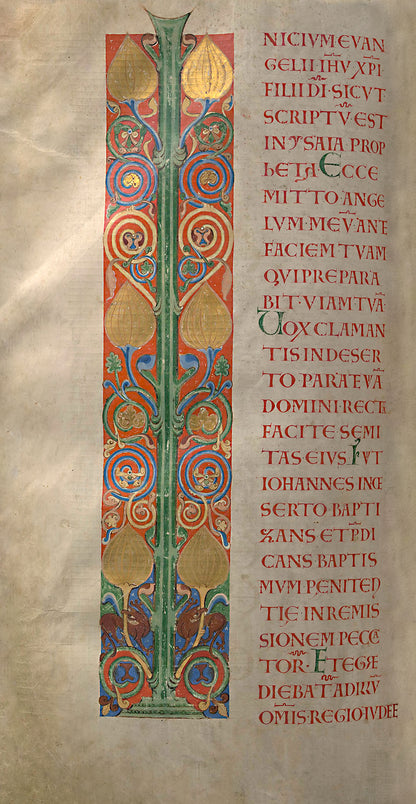 NICIVM EVAN
GELII·IHV XPI
FILII DI·SICVT
SCRIPTV EST
IN YSAIA PROP
hETA·ECCE
MITTO·ANGE
LVM·MEV ANT
FACIEM TVAM
QVI PREPARA
BIT·VIAM TVA
VOX CLAMAN
TIS IN DESER
TO·PARATE VIA
DOMINI·RECTA
FACITE SEMI
TAS EIVS·FVIT
IOHANNES IN
SERTO·BAPTI
ZANS·ET PDI
CANS BAPTIS
MVM PENITEN
TIE IN REMIS
SIONEM PECCA
TOR·ET EGRE
DIEBAT AD ILLV
OMIS·REGIO IVDEE